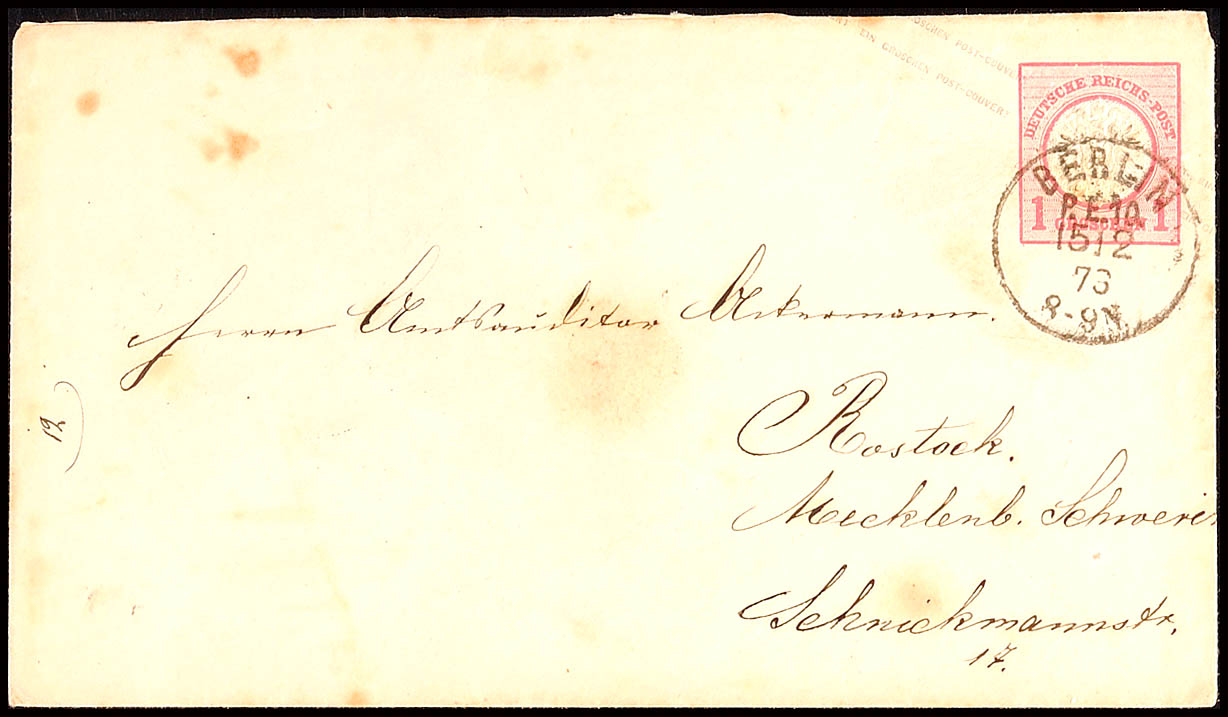 GROSCHEN POST-COUVERT
EIN GROSCHEN POST-COUVERT
DEUTSCHE REICHS-POST
1 GROSCHEN 1
BERLIN
P.E.10
15 12
73
8-9N.
Herrn Amtsauditor Ackermann.
Rostock.
Mecklenb. Schwerin
Schnickmannstr.
17.